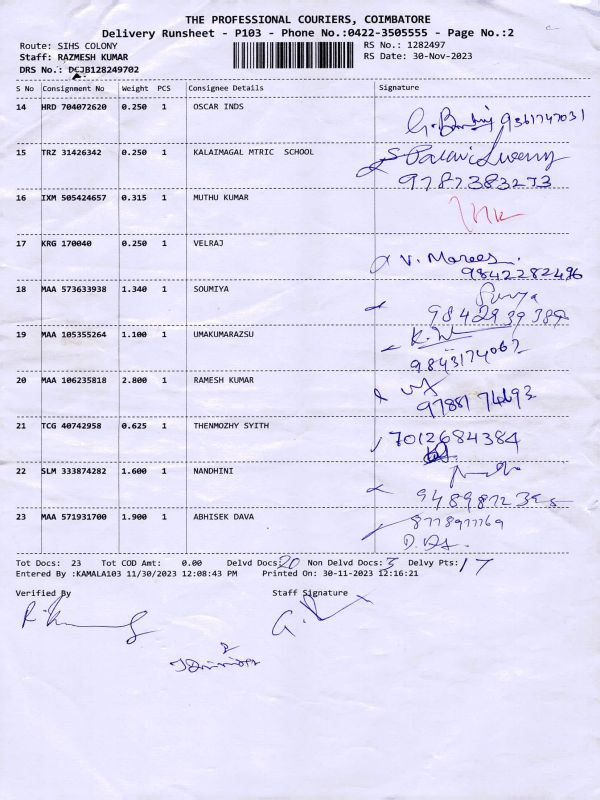 THE PROFESSIONAL COURIERS, COIMBATORE
Delivery Runsheet - P103 - Phone No.:0422-3505555 - Page No.:2
Route: SIHS COLONY
RS No.: 1282497
Staff: RAZMESH KUMAR
RS Date: 30-Nov-2023
DRS No.: DCJB128249702
S No Consignment No Weight PCS Consignee Details Signature
14 HRD 704072620 0.250 1 OSCAR INDS
9361747031
15 TRZ 31426342 0.250 1 KALAIMAGAL MTRIC SCHOOL
9787383273
16 IXM 505424657 0.315 1 MUTHU KUMAR
17 KRG 170040 0.250 1 VELRAJ
V. Marees.
9842282496
18 MAA 573633938 1.340 1 SOUMIYA
Surya
9842939389
19 MAA 105355264 1.100 1 UMAKUMARAZSU
9843174067
20 MAA 106235818 2.800 1 RAMESH KUMAR
9788174693
21 TCG 40742958 0.625 1 THENMOZHY SYITH
7012684384
22 SLM 333874282 1.600 1 NANDHINI
9489872395
23 MAA 571931700 1.900 1 ABHISEK DAVA
8778977769
Tot Docs: 23 Tot COD Amt: 0.00 Delvd Docs: 20 Non Delvd Docs: 3 Delvy Pts: 17
Entered By :KAMALA103 11/30/2023 12:08:43 PM Printed On: 30-11-2023 12:16:21
Verified By Staff Signature